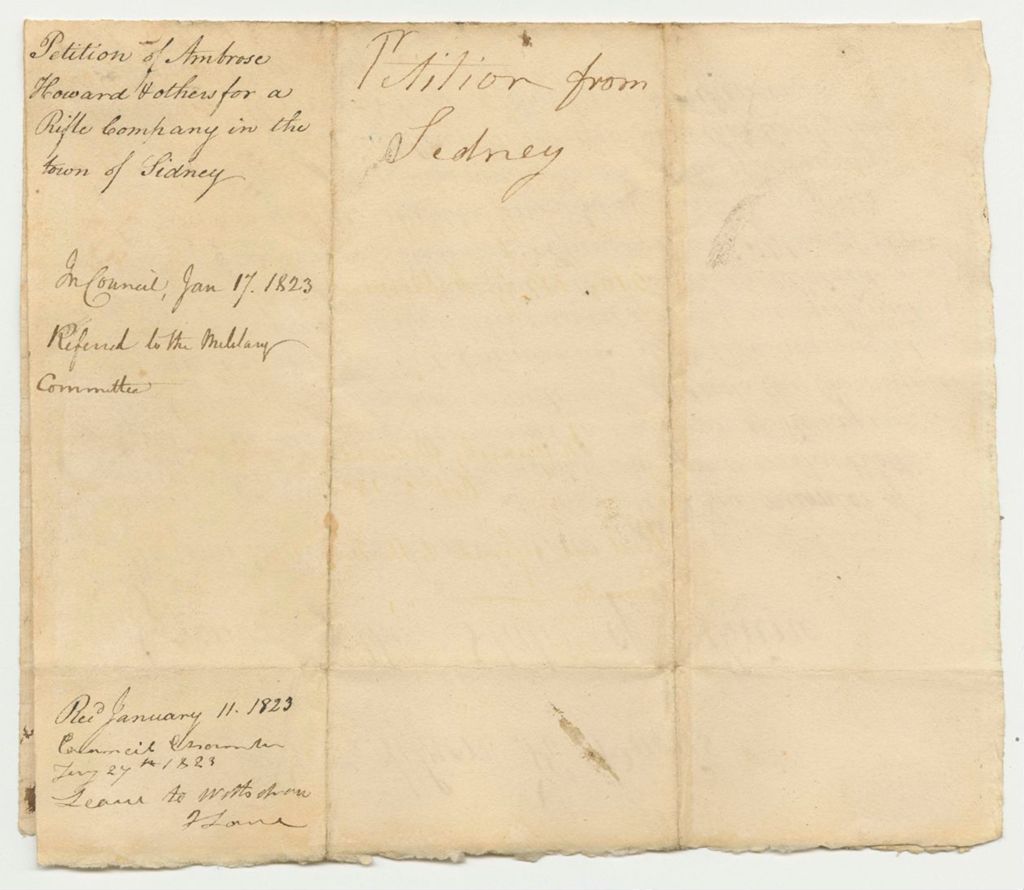 Petition of Ambrose
Howard & others for a
Rifle Company in the
town of Sidney
In Council, Jan 17. 1823
Referred to the Military
Committee
Recd January 11. 1823
Council Chamber
27th 1823
Leave to Withdraw
Petition from
Sidney